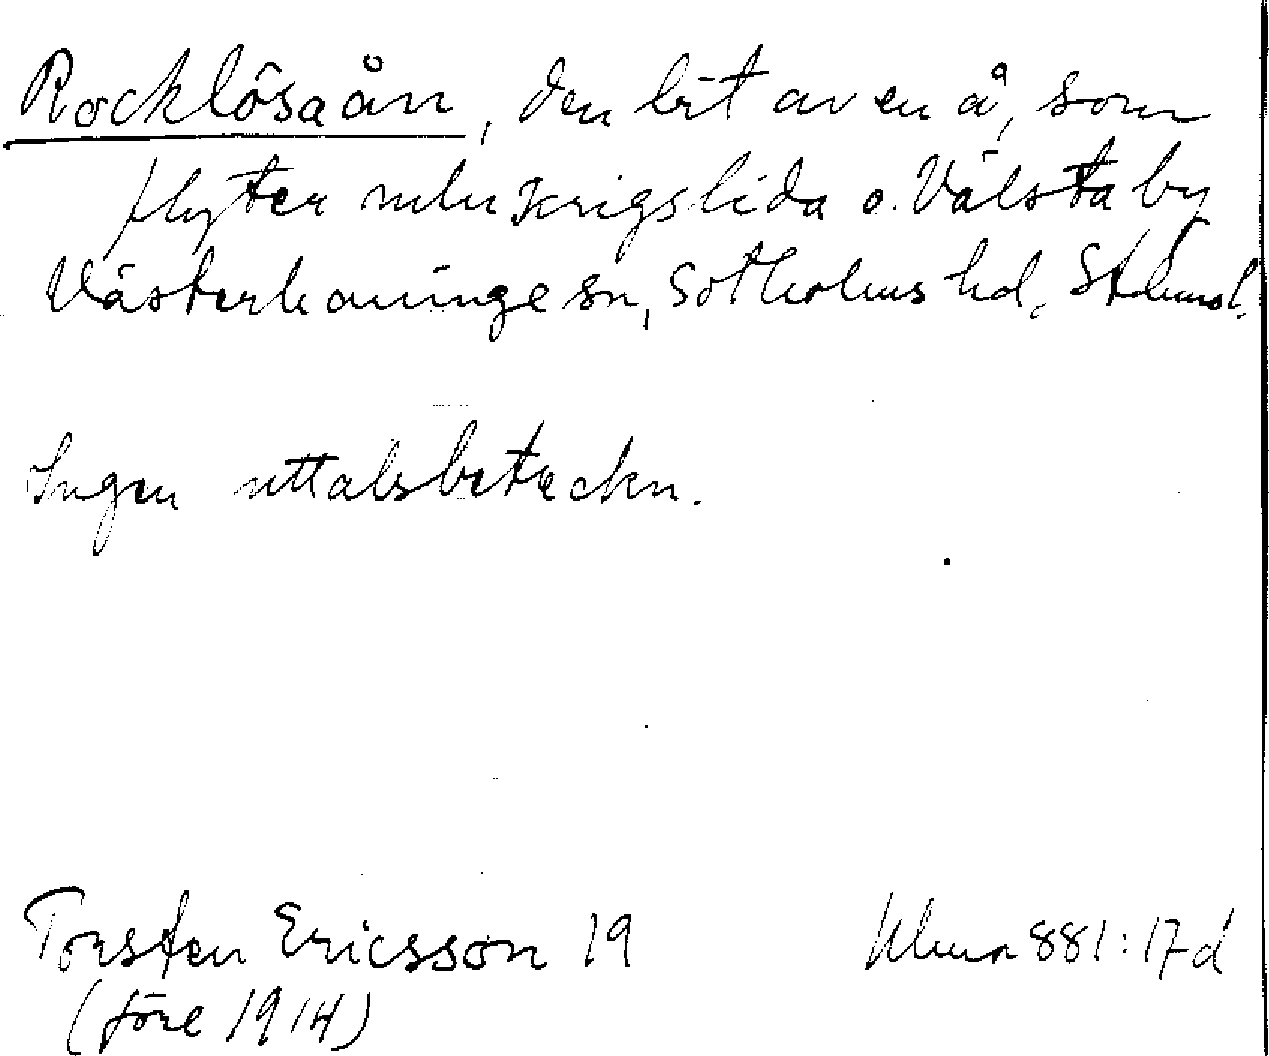 Rocklösaån, den bit av en å, som
flyter mln Krigslida o. Välsta by
Västerhaninge sn, Sotholms hd, Sthms l.
Ingen uttalsbeteckn.
Torsten Ericsson 19
(före 1914)
881:17d